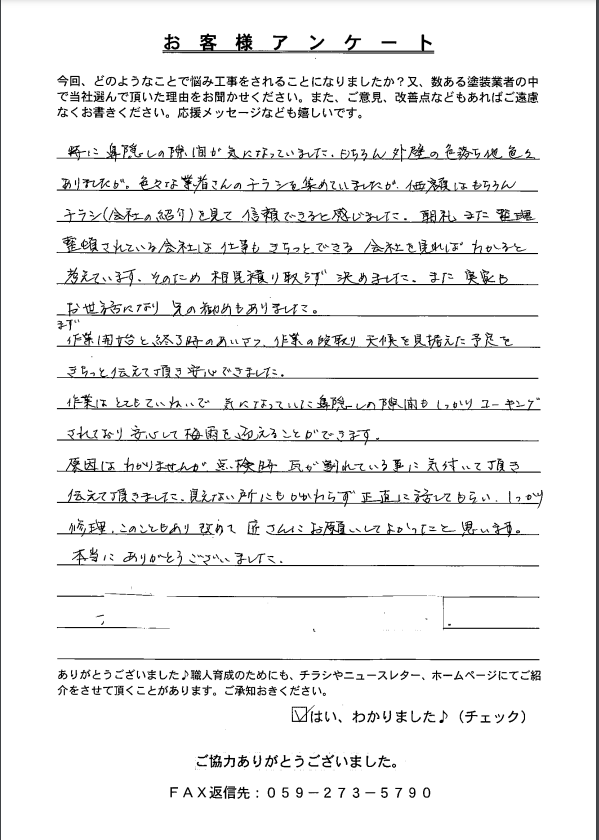 お客様アンケート
今回、どのようなことで悩み工事をされることになりましたか？又、数ある塗装業者の中
で当社選んで頂いた理由をお聞かせください。また、ご意見、改善点などもあればご遠慮
なくお書きください。応援メッセージなども嬉しいです。
特に鼻隠しの隙間が気になっていました。もちろん外壁の色落ち他色々
ありましたが。色々な業者さんのチラシを集めていましたが、価額はもちろん
チラシ(会社の紹介)を見て信頼できると感じました。朝礼また整理
整頓されている会社は仕事もきちっとできる会社を見ればわかると
考えています。そのため相見積り取らず決めました。また実家も
お世話になり兄の勧めもありました。
まず
作業開始と終了時のあいさつ、作業の段取り天候を見据えた予定を
きちっと伝えて頂き安心できました。
作業はとてもていねいで気になっていた鼻隠しの隙間もしっかりコーキング
されており安心して梅雨を迎えることができます。
原因はわかりませんが点検時瓦が割れている事に気付いて頂き
伝えて頂きました、見えない所にもかかわらず正直に話してもらい、しっかり
修理、このこともあり改めて匠さんにお願いしてよかったこと思います。
本当にありがとうございました。
ありがとうございました♪職人育成のためにも、チラシやニュースレター、ホームページにてご紹
介をさせて頂くことがあります。ご承知おきください。
☑はい、わかりました♪（チェック）
ご協力ありがとうございました。
ＦＡＸ返信先：０５９－２７３－５７９０